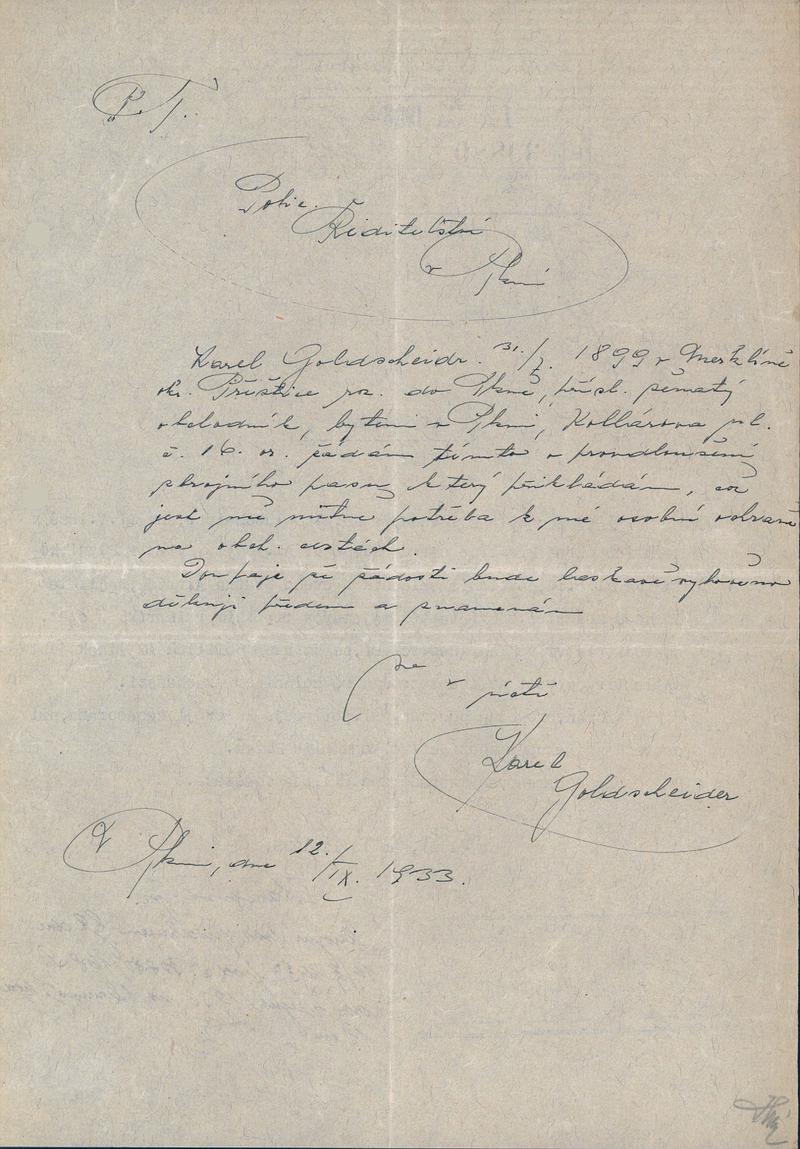 P. T.
Polic.
Ředitelství
v Plzni
Karel Goldscheidr. 31./ 1899 v Merklíně
okr. Přeštice do Plzně, přísl. ženatý
obchodník, bytem v Plzni, Kollárova ul.
č. 16. žádám tímto o prodloužení
zbrojního pasu který přikládám, což
jest mě nutně potřeba k mé osobní ochraně
na obch. cestách.
Doufaje že žádosti bude laskavě vyhověno
děkuji předem a znamenám
v úctě
Karel
Goldscheider
V Plzni, dne 12./IX. 1933.